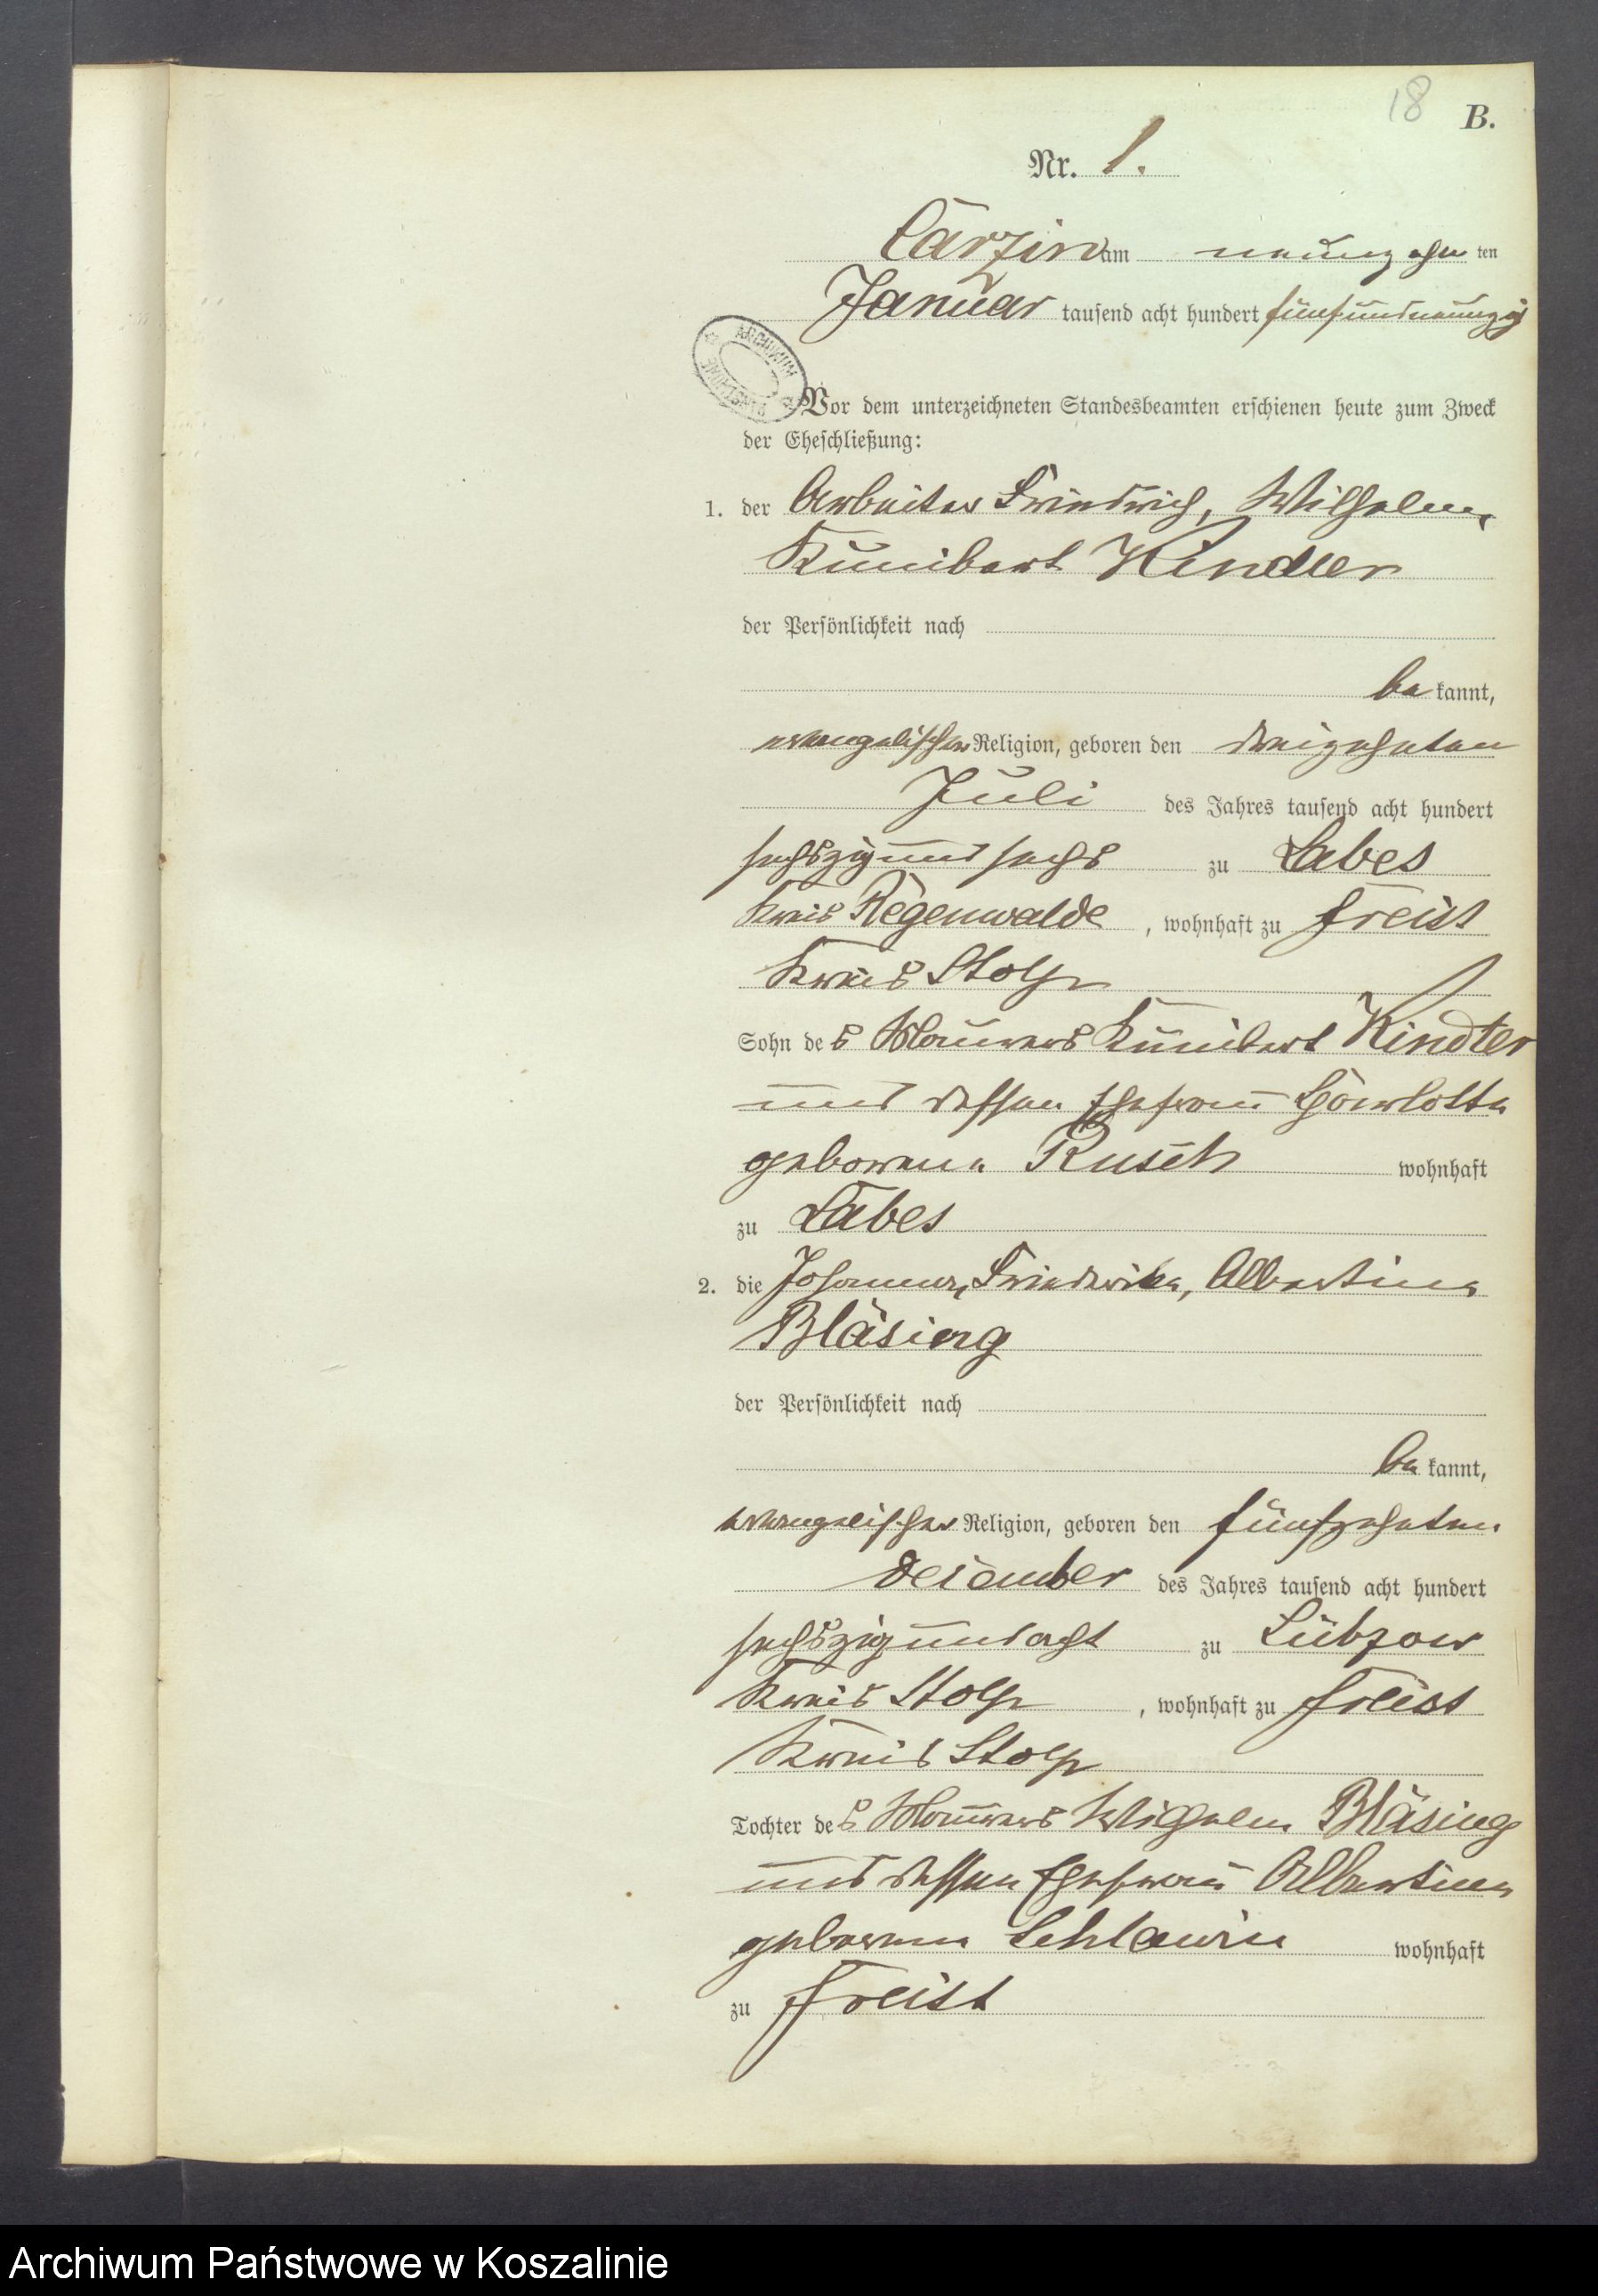 18
B.
Nr. 1.
Carzin am neunzehn ten
Januar tausend acht hundert fünfundneunzig
ARCHIWUM
Vor dem unterzeichneten Standesbeamten erschienen heute zum Zweck
der Eheschließung:
1. der Arbeiter Friedrich, Wilhelm,
Kunibert Kindler
der Persönlichkeit nach
be kannt,
evangelischer Religion, geboren den dreizehnten
Juli des Jahres tausend acht hundert
sechszig und sechs zu Labes
Kreis Regenwalde, wohnhaft zu Freist
Kreis Stolp
Sohn des Maurers Kunibert Kindler
und dessen Ehefrau Charlotte
geborene Rusch wohnhaft
zu Labes
2. die Johanna, Friederike, Albertine
Bläsing
der Persönlichkeit nach
be kannt,
evangelischer Religion, geboren den fünfzehnten
Dezember des Jahres tausend acht hundert
sechszig und acht zu Lübzow
Kreis Stolp, wohnhaft zu Freist
Kreis Stolp
Tochter des Maurers Wilhelm Bläsing
und dessen Ehefrau Albertine
geborene Schlawin wohnhaft
zu Freist
Archiwum Państwowe w Koszalinie